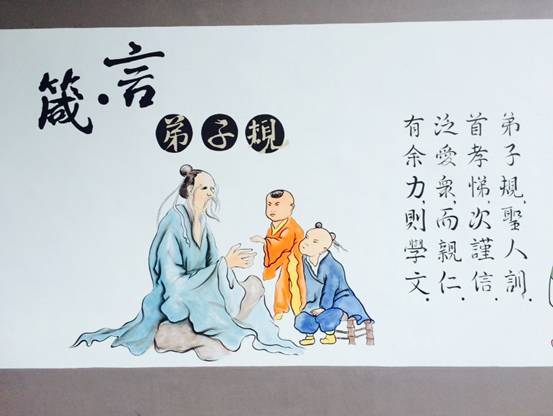 箴·言
弟子規
弟子規.聖人訓.
首孝悌.次謹信.
泛愛衆.而親仁.
有余力.則學文.